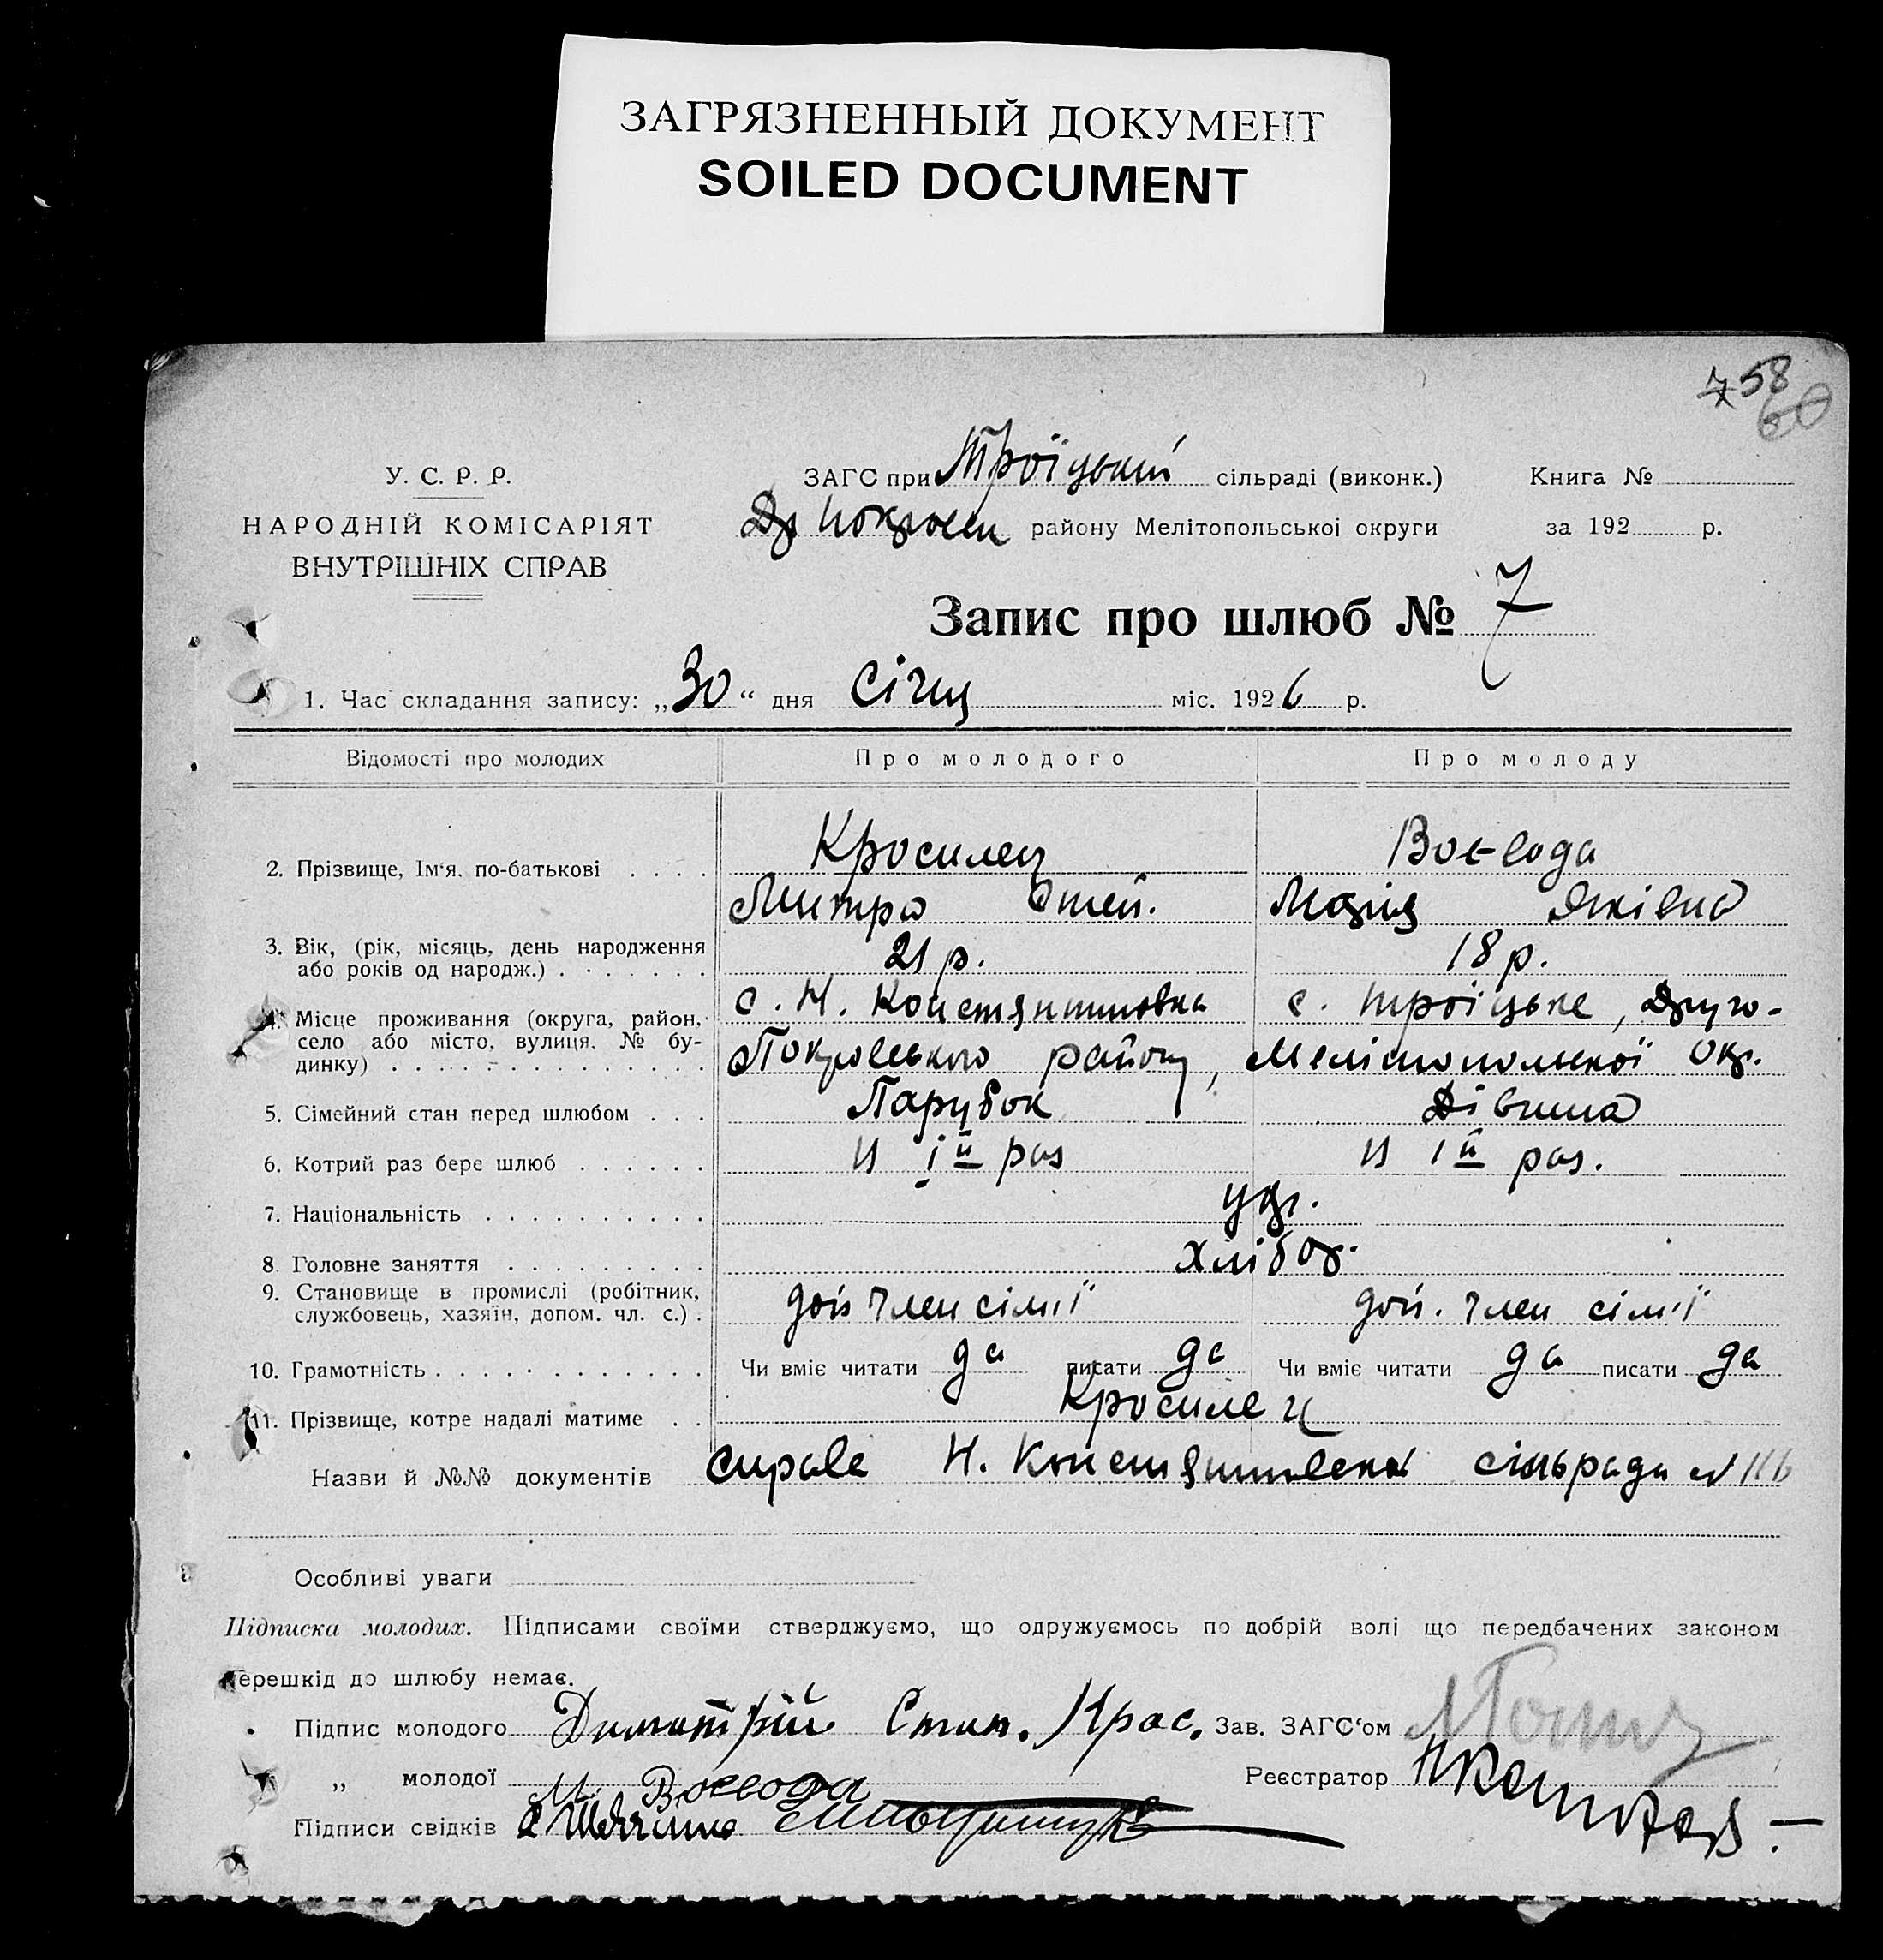 ЗАГРЯЗНЕННЫЙ ДОКУМЕНТ
SOILED DOCUMENT
7 58
60
У. С. Р. Р.
НАРОДНІЙ КОМІСАРІЯТ
ВНУТРІШНІХ СПРАВ
ЗАГС при Троїцькій сільраді (виконк.) Книга №
району Мелітопольської округи за 192 р.
Запис про шлюб № 7
1. Час складання запису: „30“ дня Січня міс. 1926 р.
Відомості про молодих Про молодого Про молоду
2. Прізвище, Ім‘я. по-батькові Кросилец Воєвода
Митро Марія Яківна
3. Вік, (рік, місяць, день народження
або років од народж.) 21 р. 18 р.
4. Місце проживання (округа, район,
село або місто, вулиця. № бу-
динку)
с. Н. Константиновка с. Троїцьке, Друго-
Покровського району, Мелітопольської окр.
5. Сімейний стан перед шлюбом Парубок Дівчина
6. Котрий раз бере шлюб И Iй раз И Iй раз.
7. Національність укр.
8. Головне заняття хлібор.
9. Становище в промислі (робітник,
службовець, хазяїн, допом. чл. с.) член сім'ї член сім'ї
10. Грамотність Чи вміє читати да писати да Чи вміє читати да писати да
11. Прізвище, котре надалі матиме Кросилец
Назви й №№ документів Н. сільради № 116
Особливі уваги
Підписка молодих. Підписами своїми стверджуємо, що одружуємось по добрій волі що передбачених законом
перешкід до шлюбу немає.
Підпис молодого Крас. Зав. ЗАГС‘ом
„ молодої М. Воевода Реєстратор
Підписи свідків